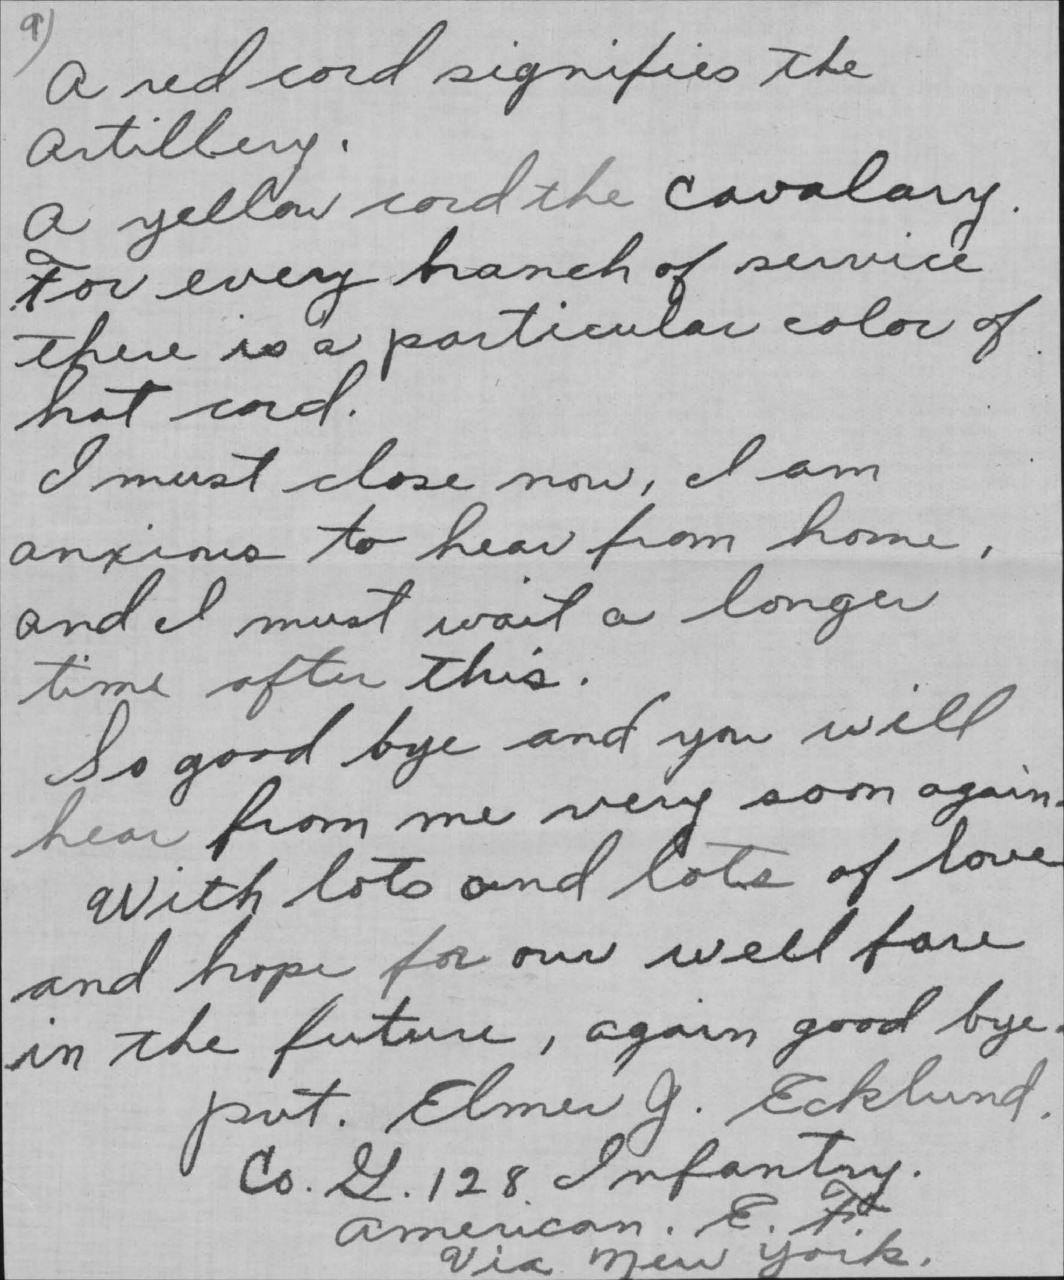 9)
A red cord signifies the
artillery.
A yellow cord the cavalary.
For every branch of service
there is a particular color of
hat cord.
I must close now, I am
anxious to hear from home,
and I must wait a longer
time after this.
So good bye and you will
hear from me very soon again.
With lots and lots of love
and hope for our well fare
in the future, again good bye.
pvt. Elmer G. Ecklund.
Co. G. 128 Infantry.
American. E. F.
Via New York.